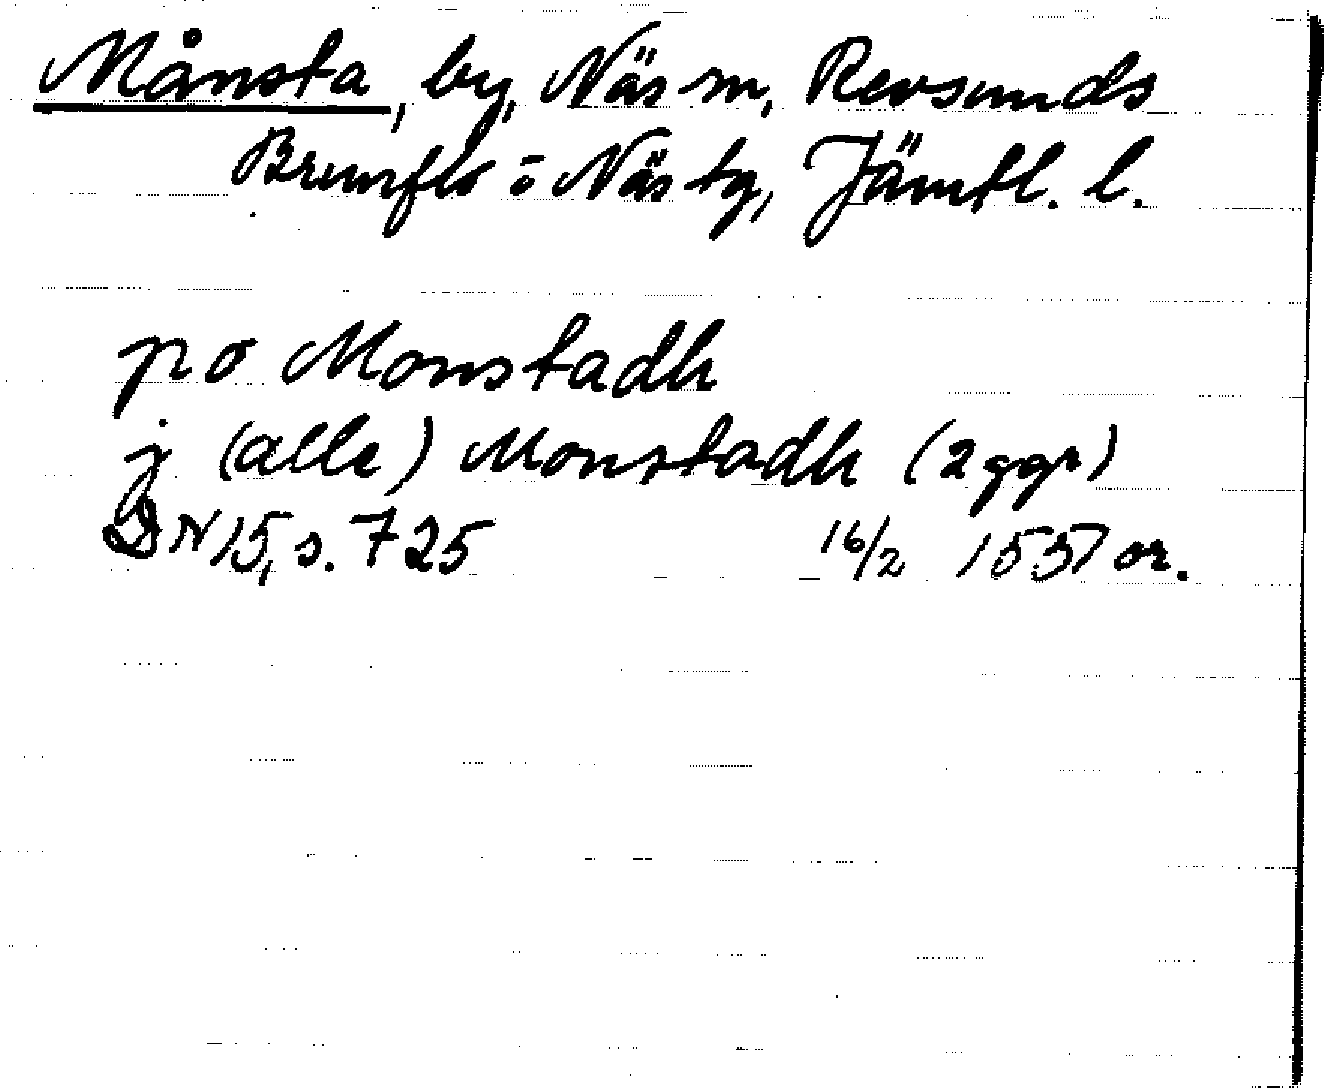 Månsta, by, Näs sn, Revsunds
Brunflo o Näs tg, Jämtl. l.
po Monstadh
j (alle) Monstadh (2 ggr)
DN 15, s. 725 16/2 1557 or.